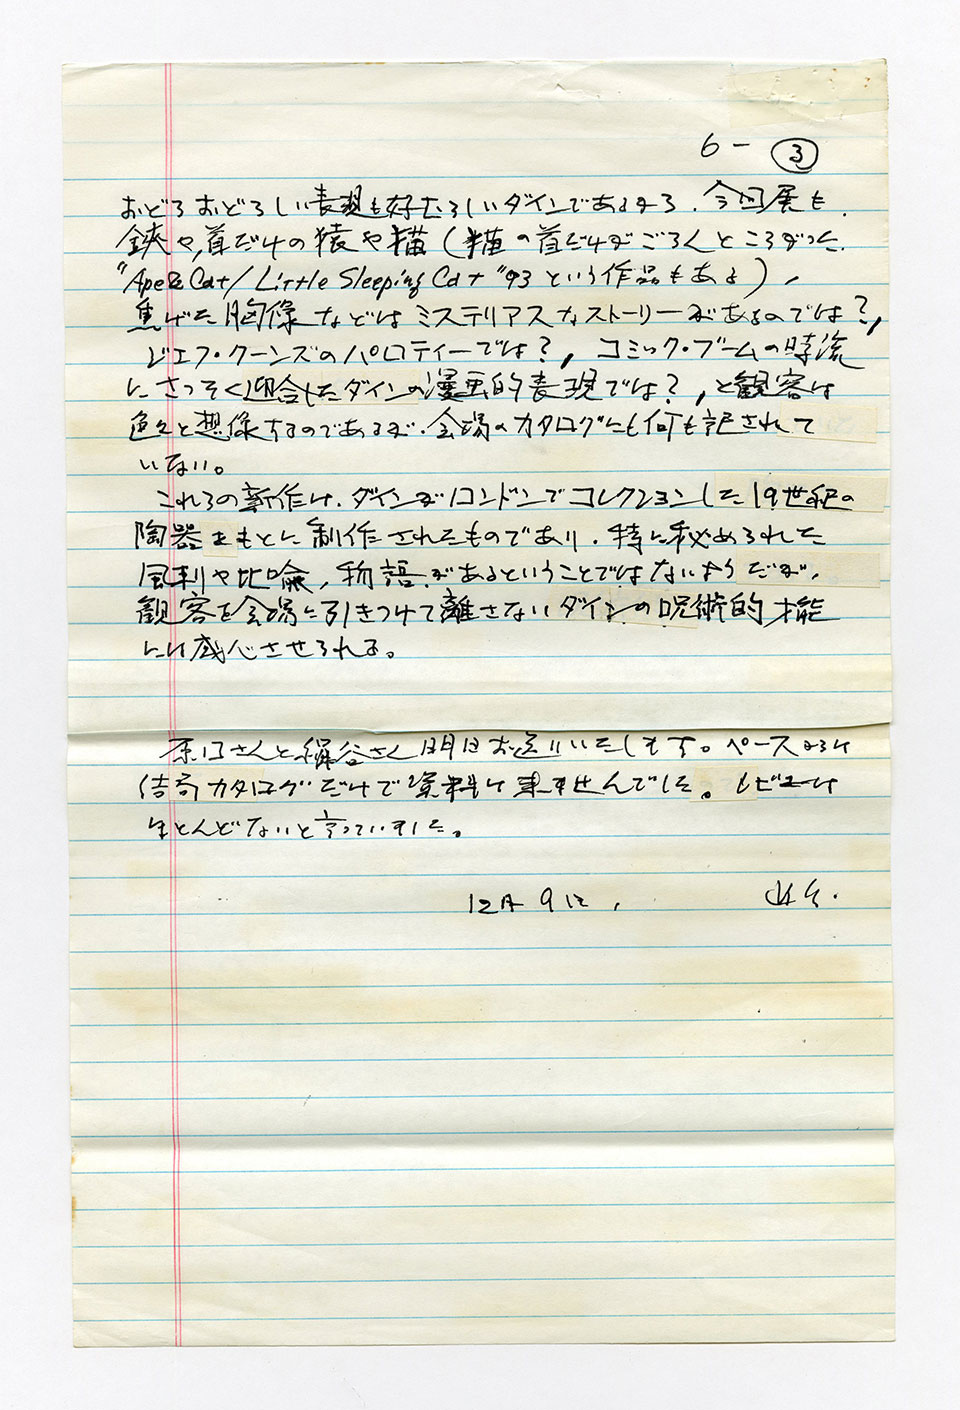 6 - ③
おどろおどろしい表現も好むらしいダインであるから、今回展も、
鋏や、首だけの猿や猫(猫の首だけがごろんところがった、
"Ape & Cat / Little Sleeping Cat" 93 という作品もある)、
焦げた胸像などはミステリアスなストーリーがあるのでは?,
ジェフ・クーンズのパロディーでは?, コミック・ブームの時流
にさっそく迎合したダインの漫画的表現では?, と観客は
色々と想像するのであるが、会場のカタログにも何も記されて
いない。
これらの新作は、ダインがロンドンでコレクションした19世紀の
陶器をもとに制作されたものであり、特に秘められた
風刺や比喩, 物語があるということではないようだが、
観客を会場に引きつけて離さないダインの呪術的才能
には感心させられる。
原口さんと絹谷さん明日お送りいたします。ペースからは
カタログだけで資料は来ませんでした。レビューは
ほとんどないと言っていました。
12月9日,